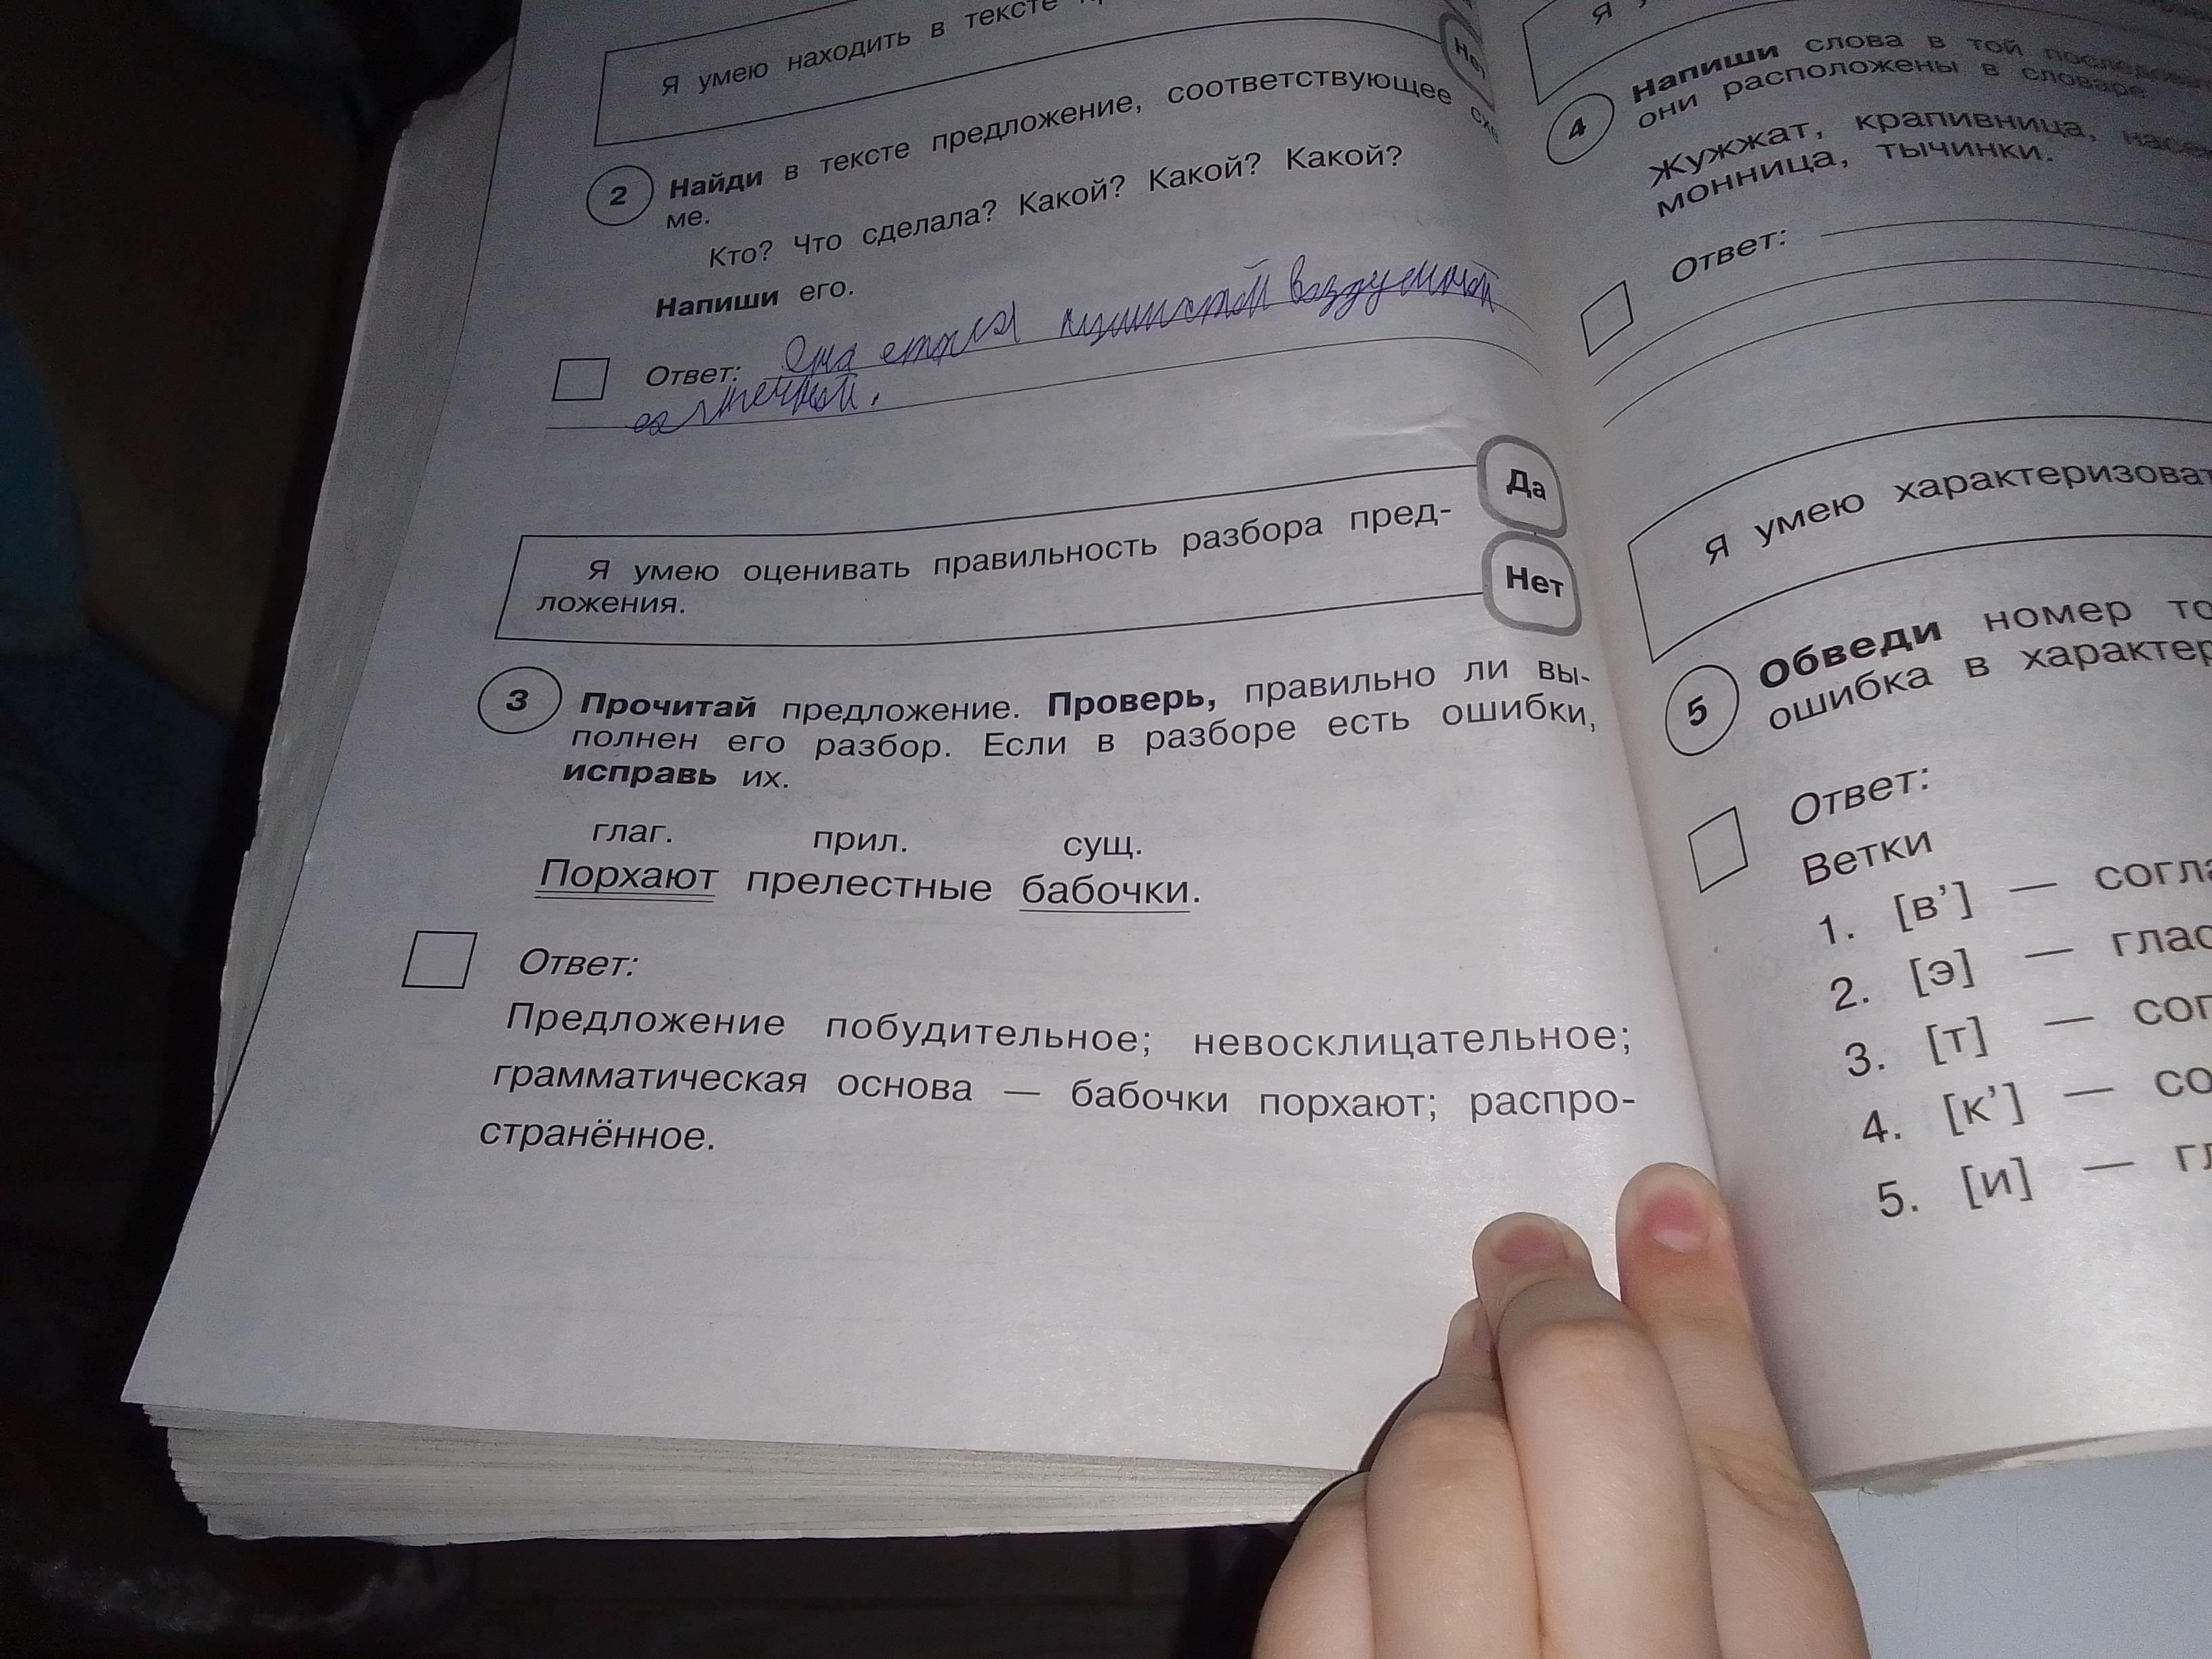 Я умею находить в тексте
Нет
2 Найди в тексте предложение, соответствующее схе
ме.
Кто? Что сделала? Какой? Какой? Какой?
Напиши его.
Ответ: Она стала пушистой воздушной
солнечной.
Да
Нет
Я умею оценивать правильность разбора пред-
ложения.
3 Прочитай предложение. Проверь, правильно ли вы-
полнен его разбор. Если в разборе есть ошибки,
исправь их.
глаг. прил. сущ.
Порхают прелестные бабочки.
Ответ:
Предложение побудительное; невосклицательное;
грамматическая основа — бабочки порхают; распро-
странённое.
Я
4 Напиши слова в той
они расположены в словаре.
Жужжат, крапивница, насе
монница, тычинки.
Ответ:
Я умею характеризоват
5 Обведи номер то
ошибка в характер
Ответ:
Ветки
1. [в’] — согла
2. [э] — глас
3. [т] — сог
4. [к’] — со
5. [и] — гл